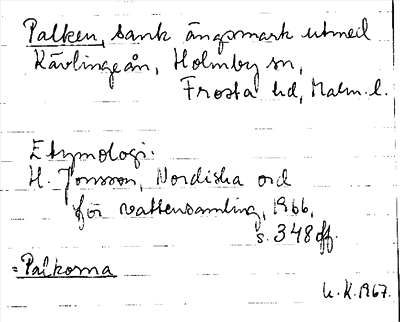 Palken, sank ängsmark utmed
Kävlingeån, Holmby sn,
Frosta hd, Malm. l.
Etymologi:
H. Jonsson, Nordiska ord
för vattensamling, 1966,
s. 348 ff.
= Palkorna
U.K. 1967.